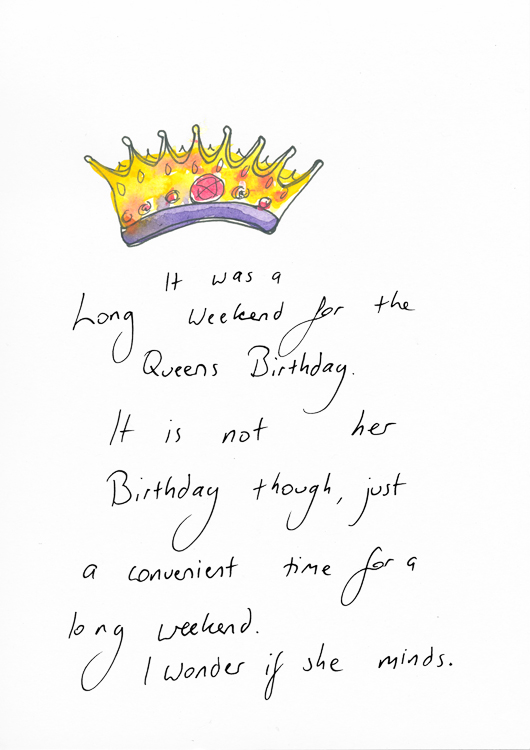 It was a
Long Weekend for the
Queens Birthday.
It is not her
Birthday though, just
a convenient time for a
long weekend.
I wonder if she minds.